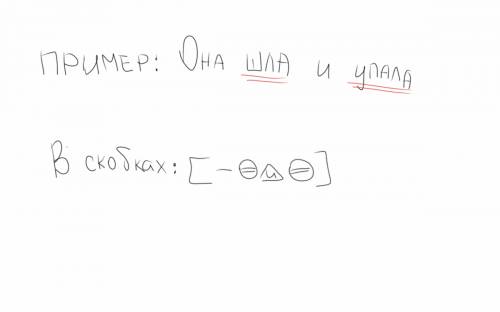 ПРИМЕР: Она шла и упала
В скобках: [– ⊖ и ⊖]